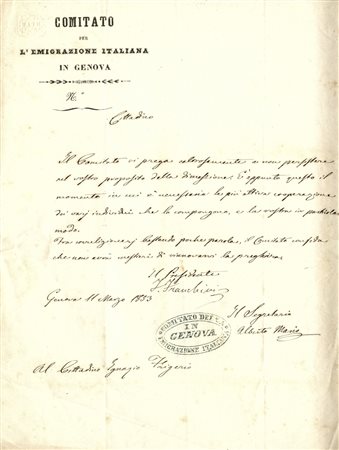 COMITATO
PER
L'EMIGRAZIONE ITALIANA
IN GENOVA
N.º
Cittadino
Il Comitato vi prega calorosamente a non persistere
nel vostro proposito della dimissione. È appunto questo il
momento in cui è necessaria la più attiva cooperazione
dei varj individui che lo compongono, e la vostra in particolar
modo.
bastando poche parole, il Comitato confida
che non avrà mestieri di rinnovarvi la preghiera.
Il Presidente
Genova 11 Marzo 1853
Il Segretario
Alberto Mario
COMITATO DELL'
IN
GENOVA
EMIGRAZIONE ITALIANA
Al Cittadino Ignazio Frigerio